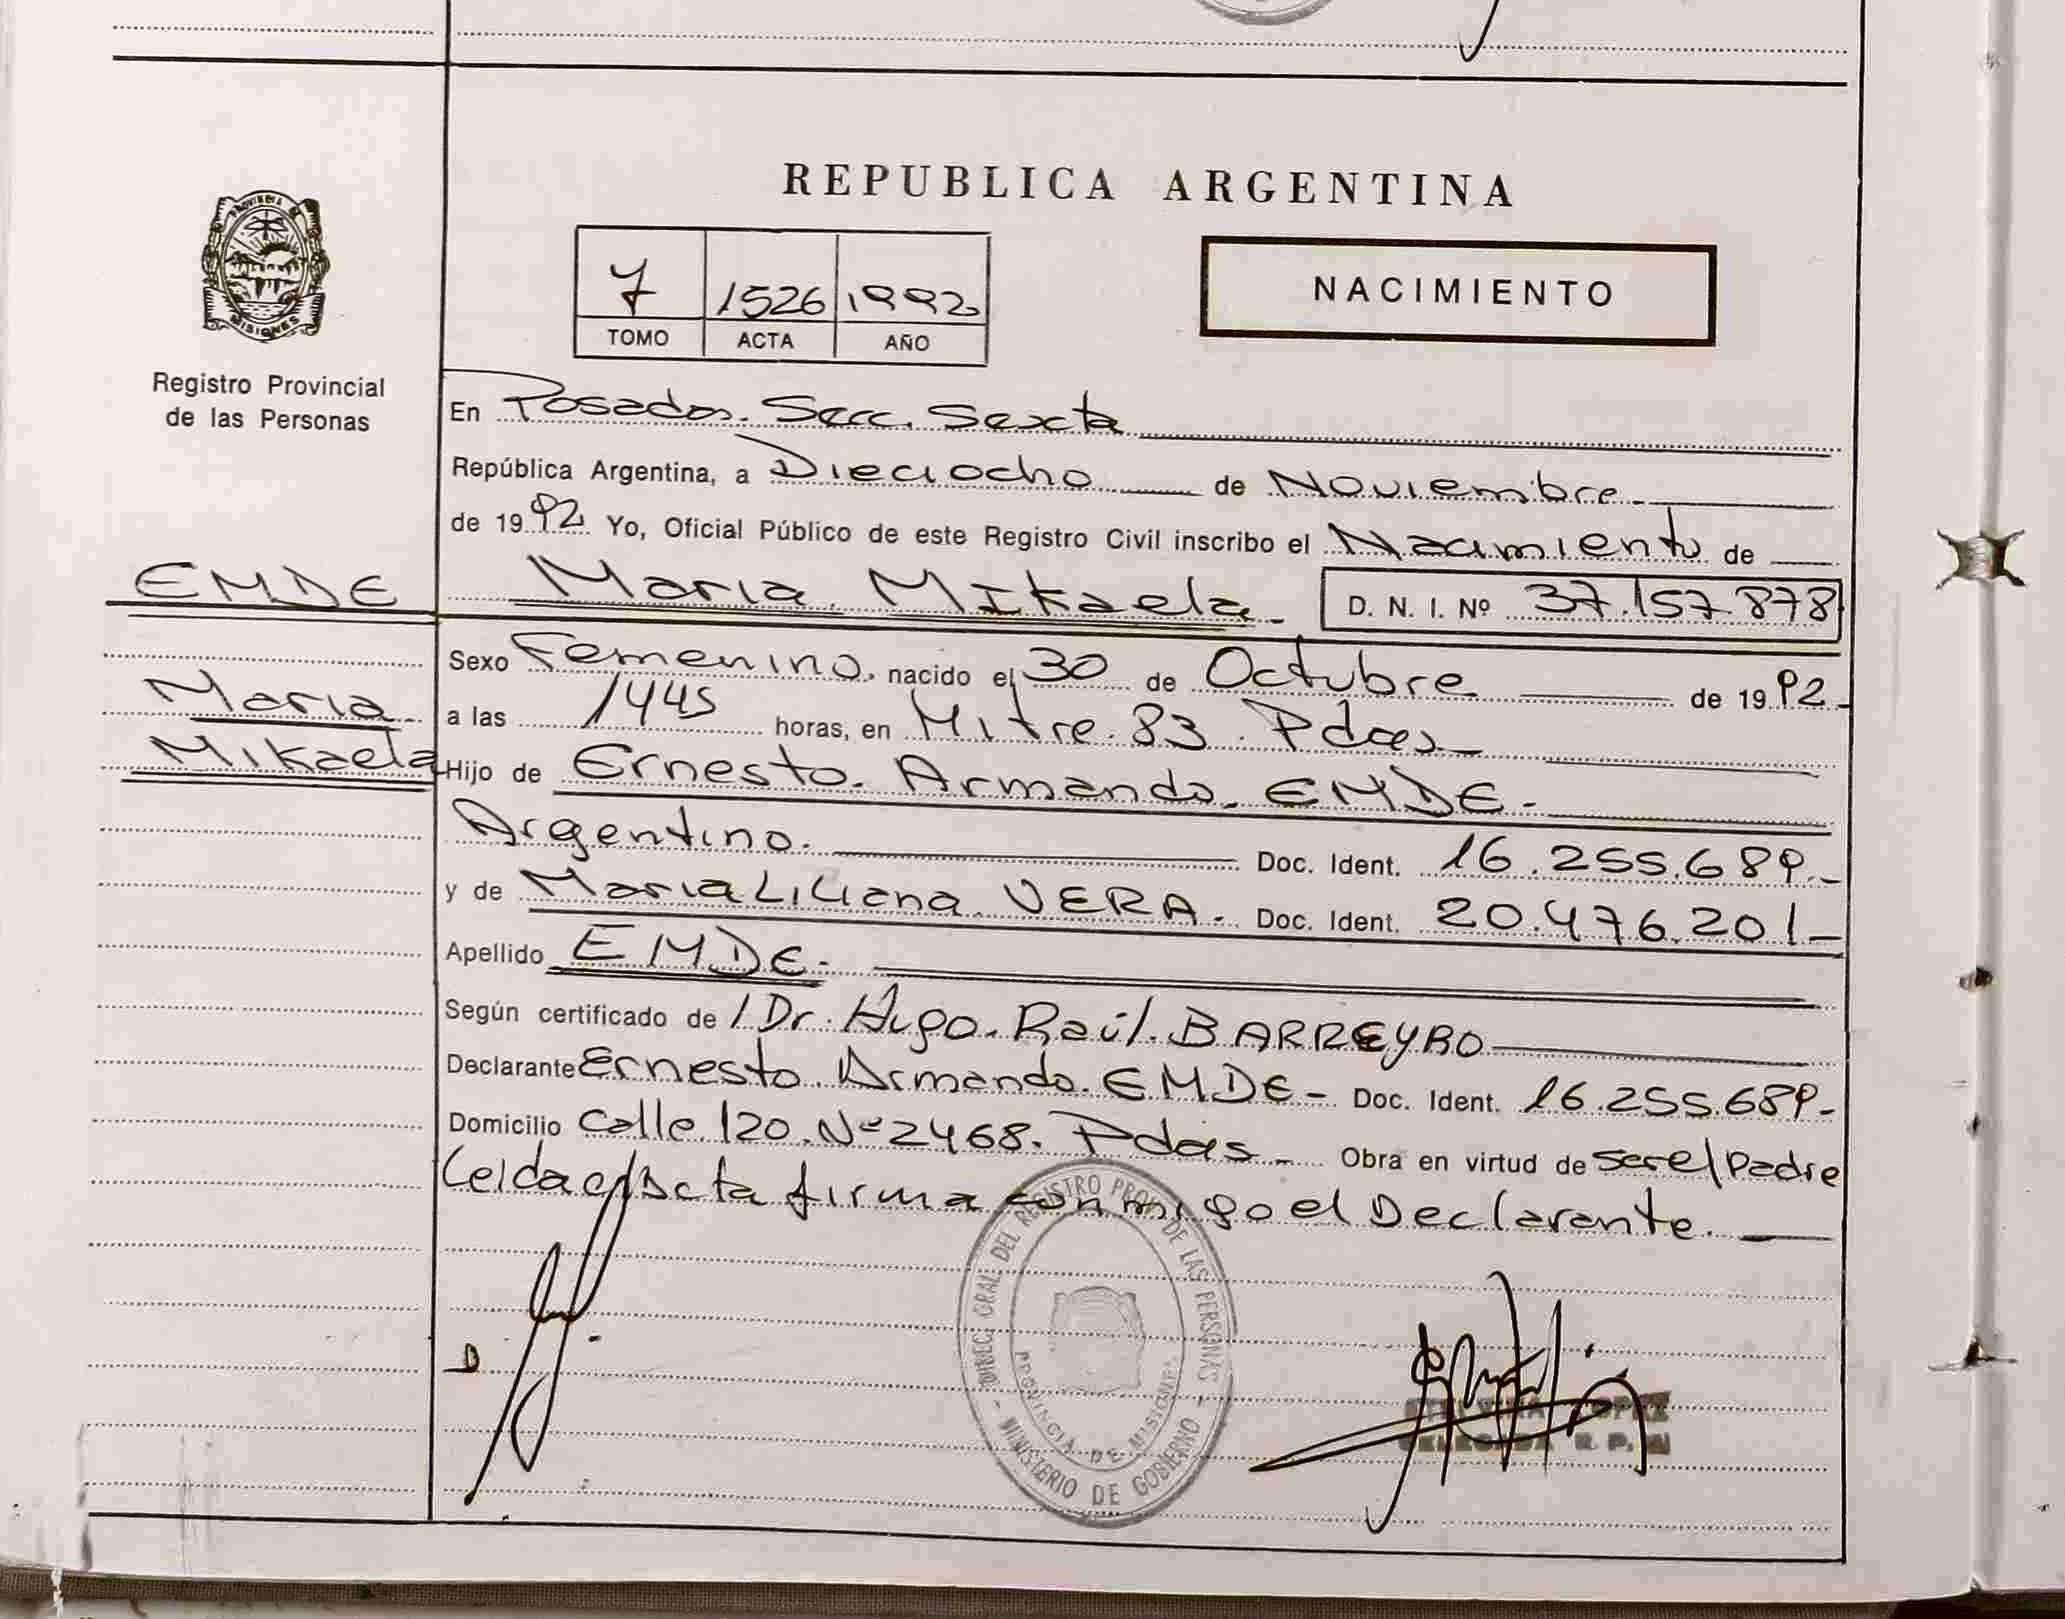 REPUBLICA ARGENTINA
PROVINCIA DE
MISIONES
Registro Provincial
de las Personas
7 1526 1992
TOMO ACTA AÑO
NACIMIENTO
En Posadas. Secc. Sexta
República Argentina, a Dieciocho de Noviembre
de 1992 Yo, Oficial Público de este Registro Civil inscribo el Nacimiento de
EMDE
Maria Mikaela D. N. I. Nº 37.157.878
Maria
Mikaela
Sexo Femenino. nacido el 30 de Octubre de 1992
a las 1445 horas, en Mitre. 83. Pdas
Hijo de Ernesto. Armando. EMDE.
Argentino. Doc. Ident. 16.255.689.
y de Maria Liliana VERA. Doc. Ident. 20.476.201
Apellido EMDE.
Según certificado de / Dr. Hugo. Raúl. BARREYRO
Declarante Ernesto. Armando. EMDE Doc. Ident. 16.255.689
Domicilio Calle 120. Nº 2468. Pdas Obra en virtud de ser el Padre
Leida el Acta firma conmigo el Declarante.
DIREC. GRAL. DEL REGISTRO PROV. DE LAS PERSONAS
PROVINCIA DE MISIONES
- MINISTERIO DE GOBIERNO -
D
LOPEZ
DELEGADA R. P.